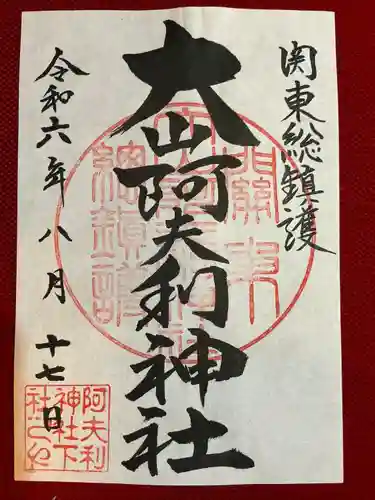 関東総鎮護
大山阿夫利神社
令和六年八月十七日
阿夫利
神社下
社之印